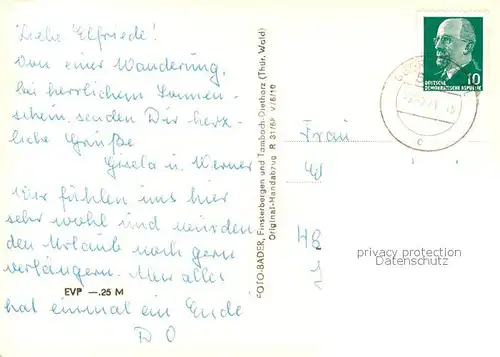 Liebe Elfriede!
Von einer Wanderung,
bei herrlichem Sonnen-
schein, senden Dir herz-
liche Grüße
Gisela u. Werner
Wir fühlen uns hier
sehr wohl und würden
den Urlaub noch gern
verlängern. Nur alles
hat einmal ein Ende
D O
EVP —.25 M
FOTO-BADER, Finsterbergen und Tambach-Dietharz (Thür. Wald)
Original-Handabzug R 31/68 V/8/10
10
DEUTSCHE
DEMOKRATISCHE REPUBLIK
c
Frau
privacy protection
Datenschutz